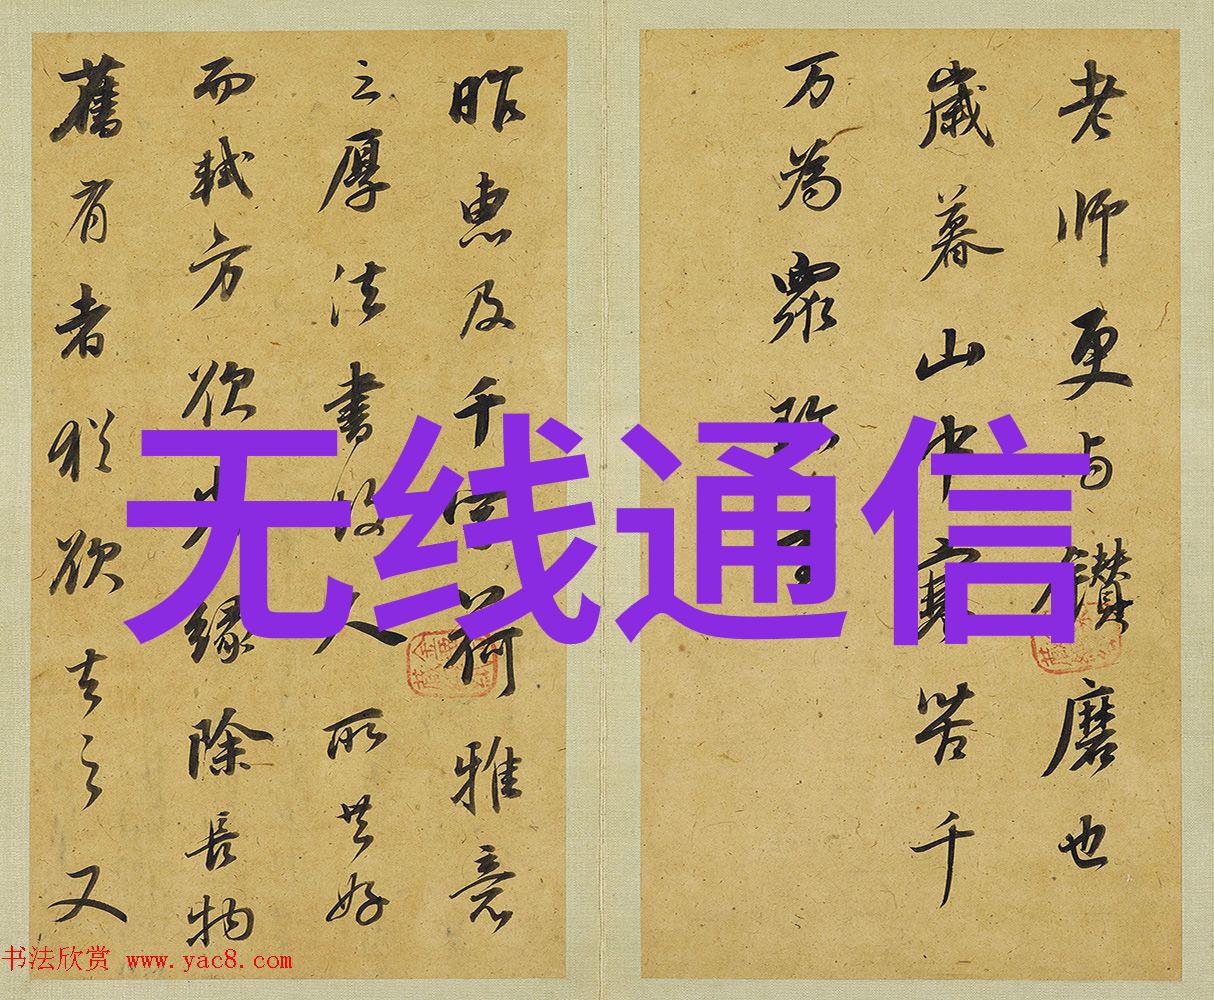 老师更与鑚磨也
歲暮山中苦千
万為眾
昨惠及千字荷雅意
之厚法書人所共好
而軾方欲省緣除長物
舊有者猶欲去之又
无线通信
书法欣赏 www.yac8.com